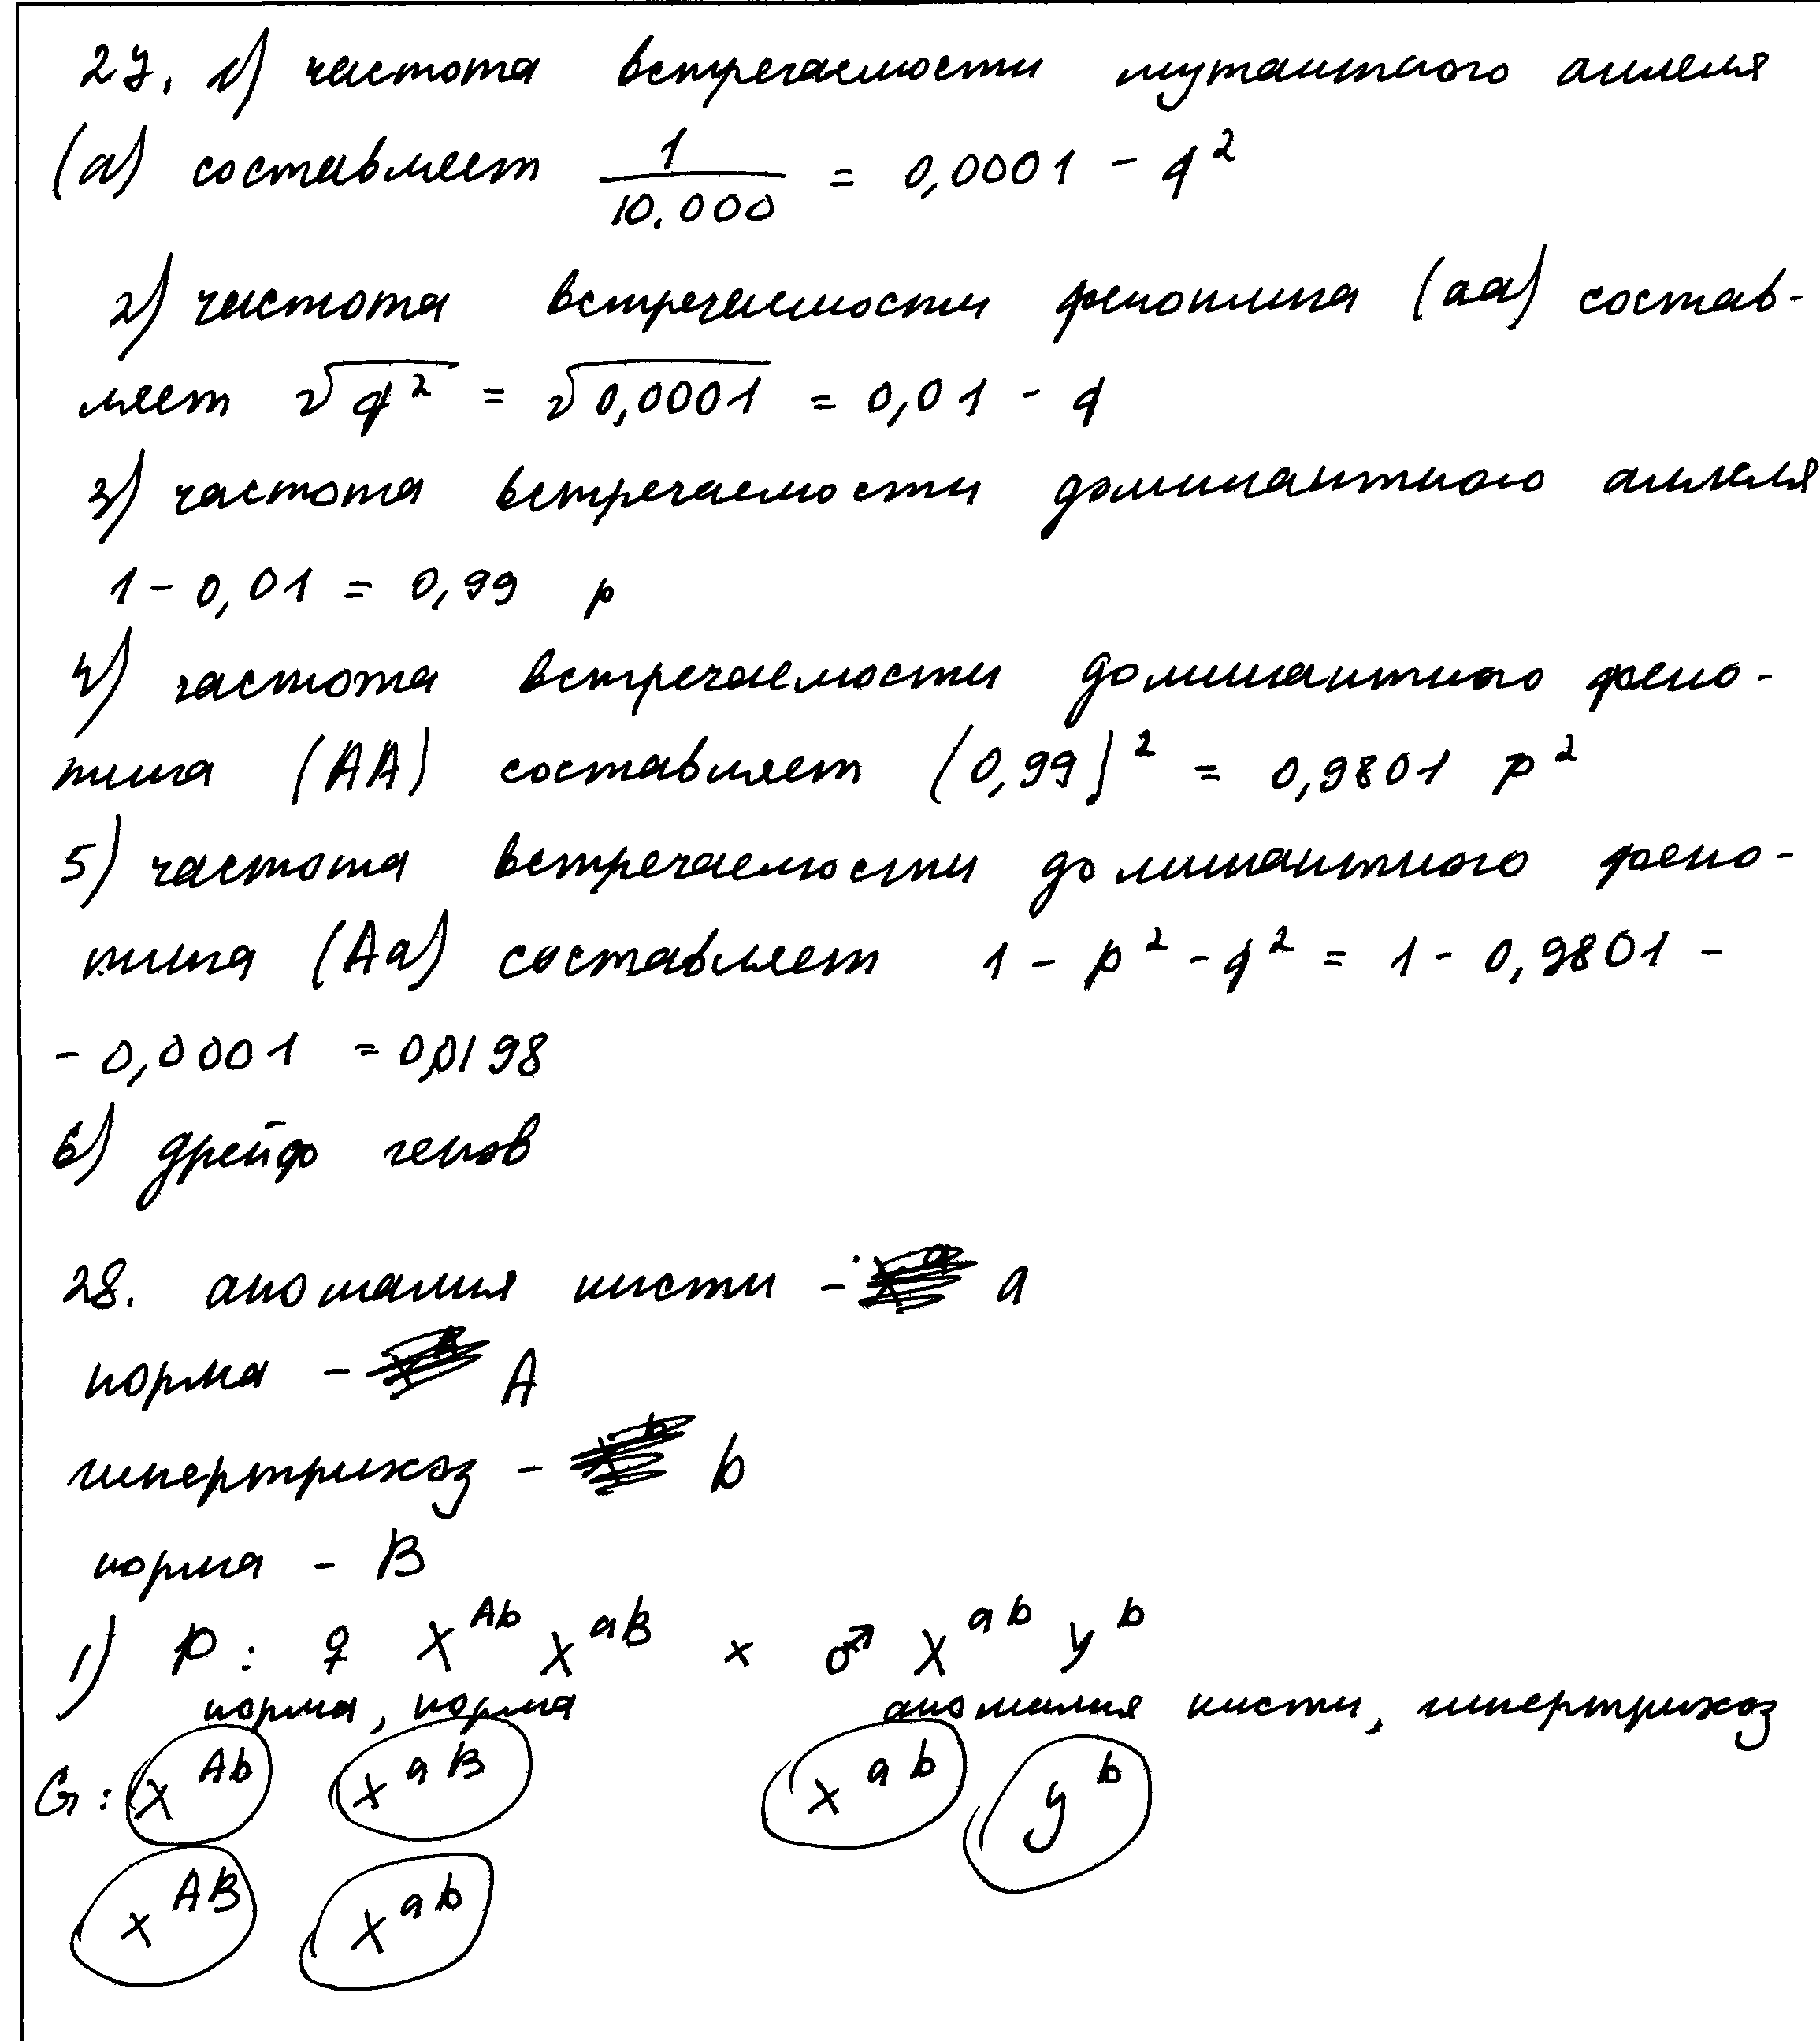 27. 1) частота встречаемости мутантного аллеля
(а) составляет 1/10.000 = 0,0001 - q²
2) частота встречаемости фенотипа (аа) состав-
ляет √q² = √0,0001 = 0,01 - q
3) частота встречаемости доминантного аллеля
1 - 0,01 = 0,99 p
4) частота встречаемости доминантного фено-
типа (АА) составляет (0,99)² = 0,9801 p²
5) частота встречаемости доминантного фено-
типа (Аа) составляет 1 - p² - q² = 1 - 0,9801 -
- 0,0001 = 0,0198
6) дрейф генов
28. аномалия кисти - а
норма - А
гипертрихоз - b
норма - B
1) P: ♀ X^Ab X^aB × ♂ X^ab y^b
норма, норма аномалия кисти, гипертрихоз
G: X^Ab X^aB X^ab y^b
X^AB X^ab